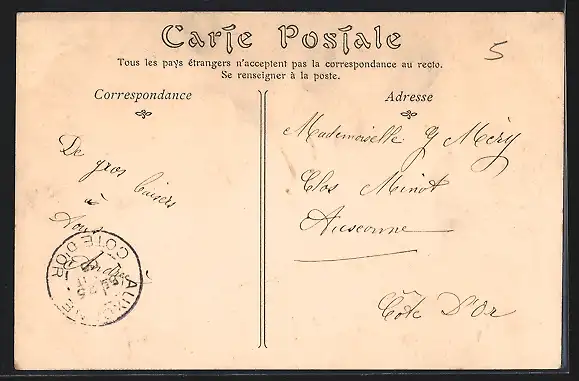 Carte Postale
5
Tous les pays étrangers n'acceptent pas la correspondance au recto.
Se renseigner à la poste.
Correspondance
Adresse
De
gros baisers
à
tous
Mademoiselle G Méry
Clos Minot
Auxonne
Côte D'Or
AUXONNE
CÔTE D'OR